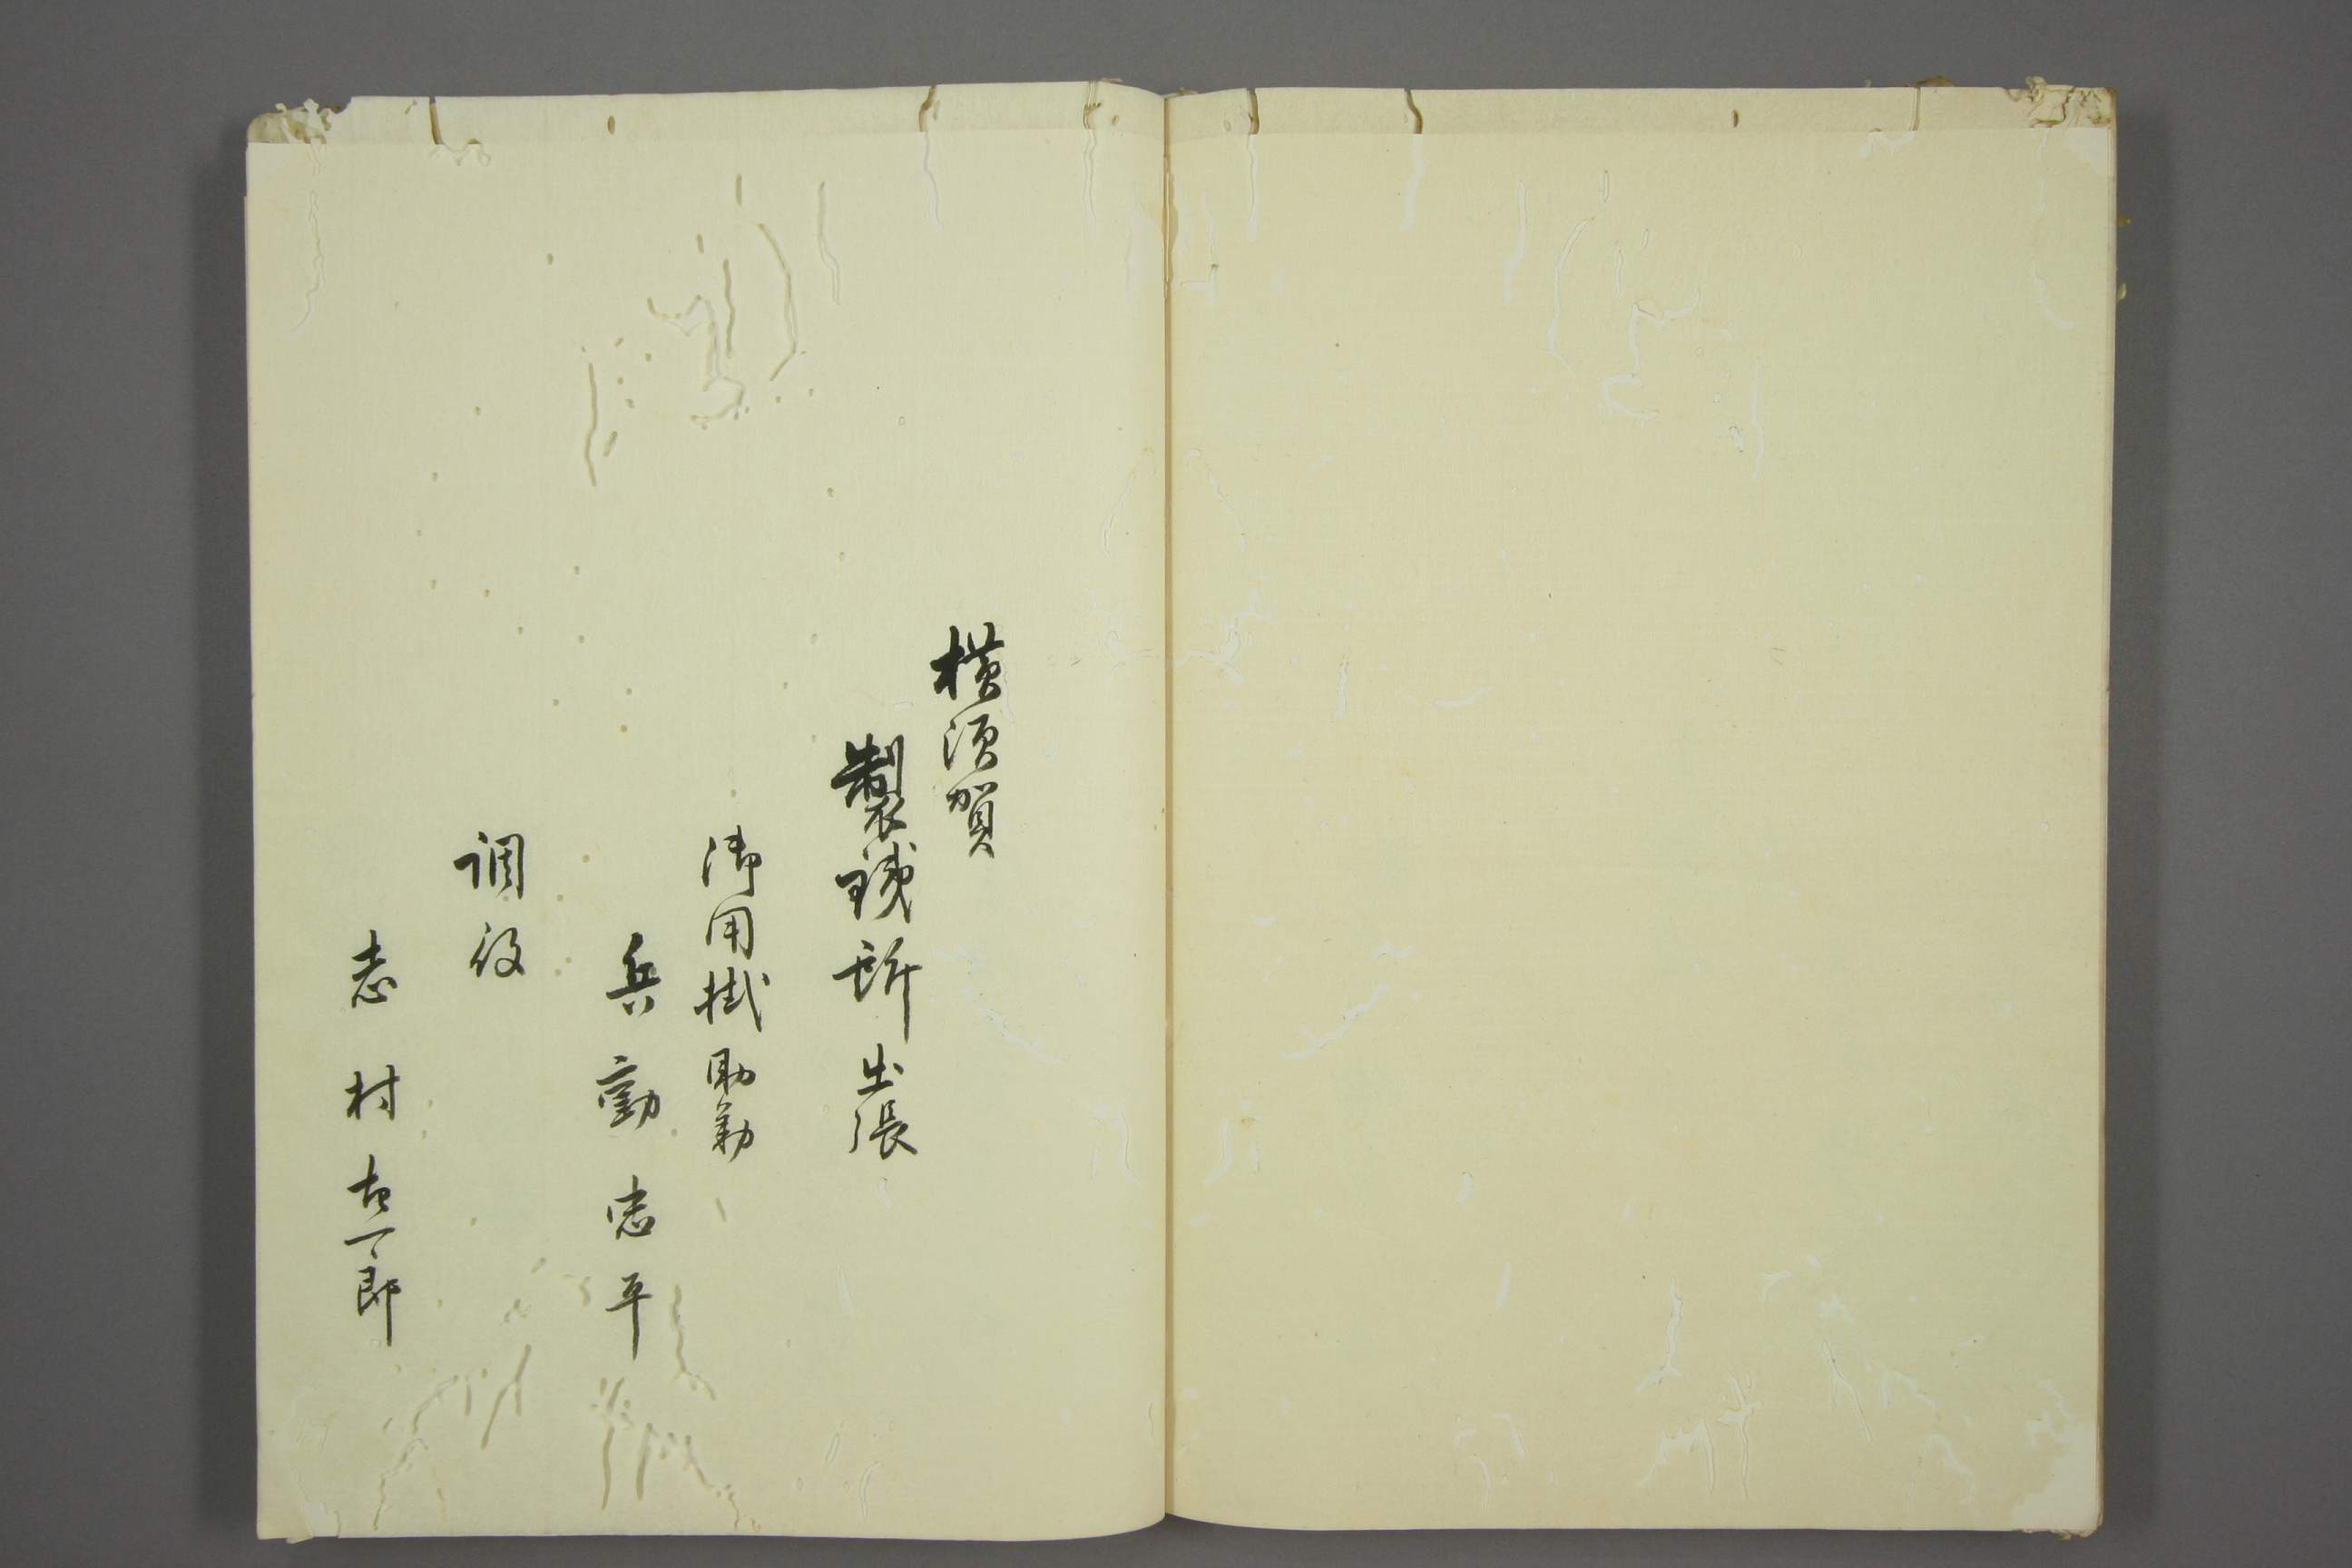 横須賀
製鉄所出張
御用掛助勤
兵働忠平
調役
志村吉郎